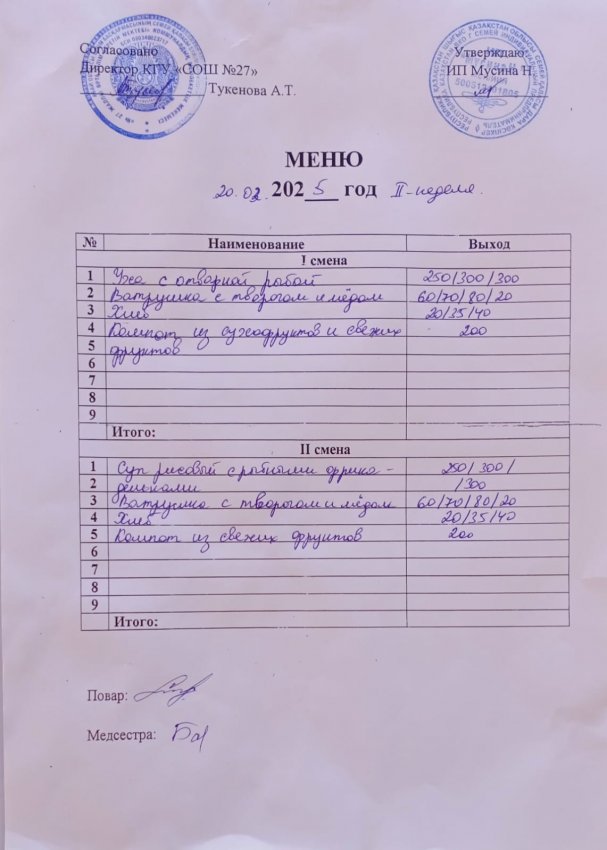 Согласовано
Утверждаю:
Директор КГУ «СОШ №27»
ИП Мусина Н.
Тукенова А.Т.
МЕНЮ
20.02.2025 год II-неделя.
№ Наименование Выход
I смена
1 Уха с отварной рыбой 250/300/300
2 Ватрушка с творогом и мёдом 60/70/80/20
3 Хлеб 20/35/40
4 Компот из сухофруктов и свежих 200
5 фруктов
6
7
8
9
Итого:
II смена
1 Суп рисовый с рыбными фрика- 250/300/
2 дельками /300
3 Ватрушка с творогом и мёдом 60/70/80/20
4 Хлеб 20/35/40
5 Компот из свежих фруктов 200
6
7
8
9
Итого:
Повар:
Медсестра: